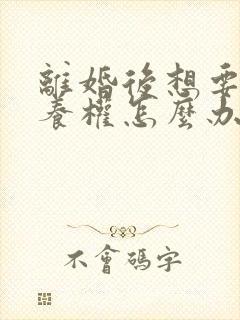 離婚後想要
養權怎麼办
不會碼字